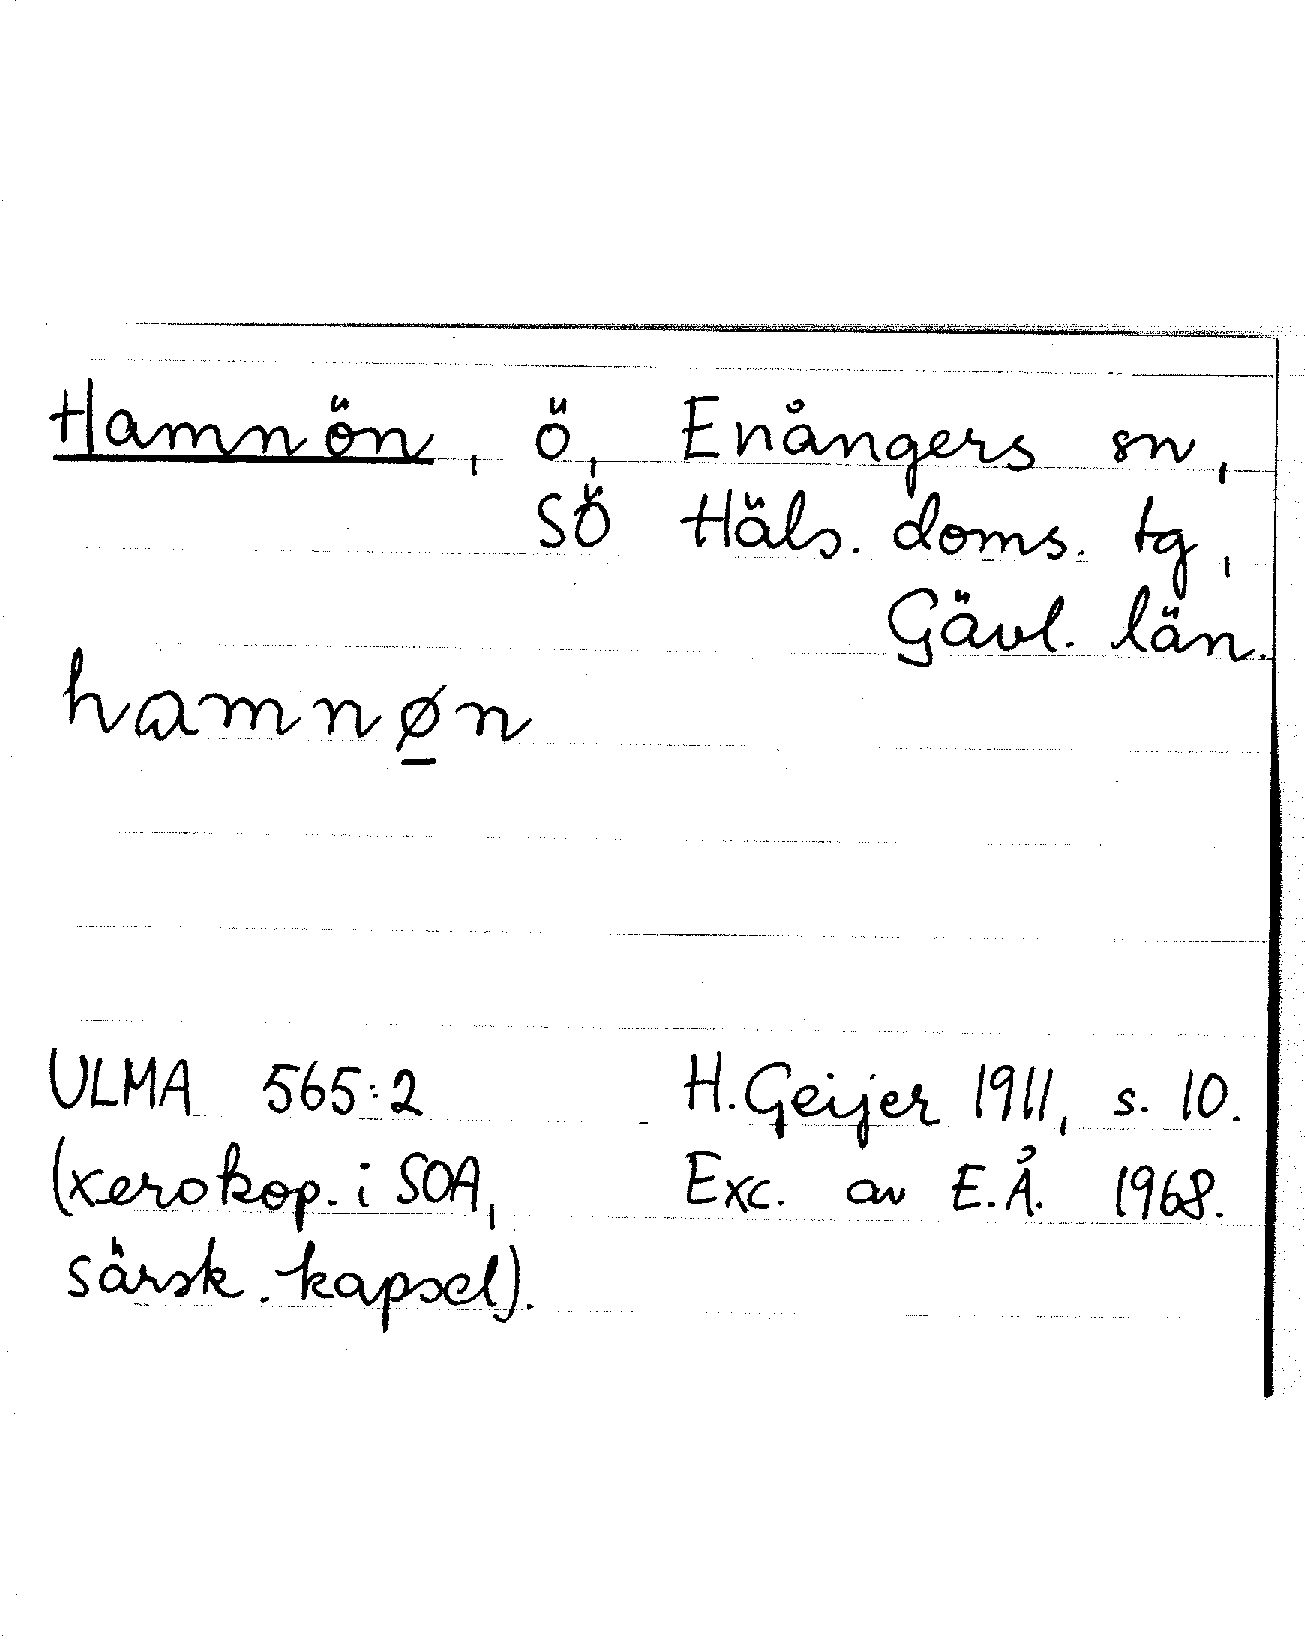 Hamnön, ö, Enångers sn,
SÖ Häls. doms. tg,
Gävl. län.
hamnøn
ULMA 565:2 H. Geijer 1911, s. 10.
(xerokop. i SOA, Exc. av E.Å. 1968.
särsk. kapsel).